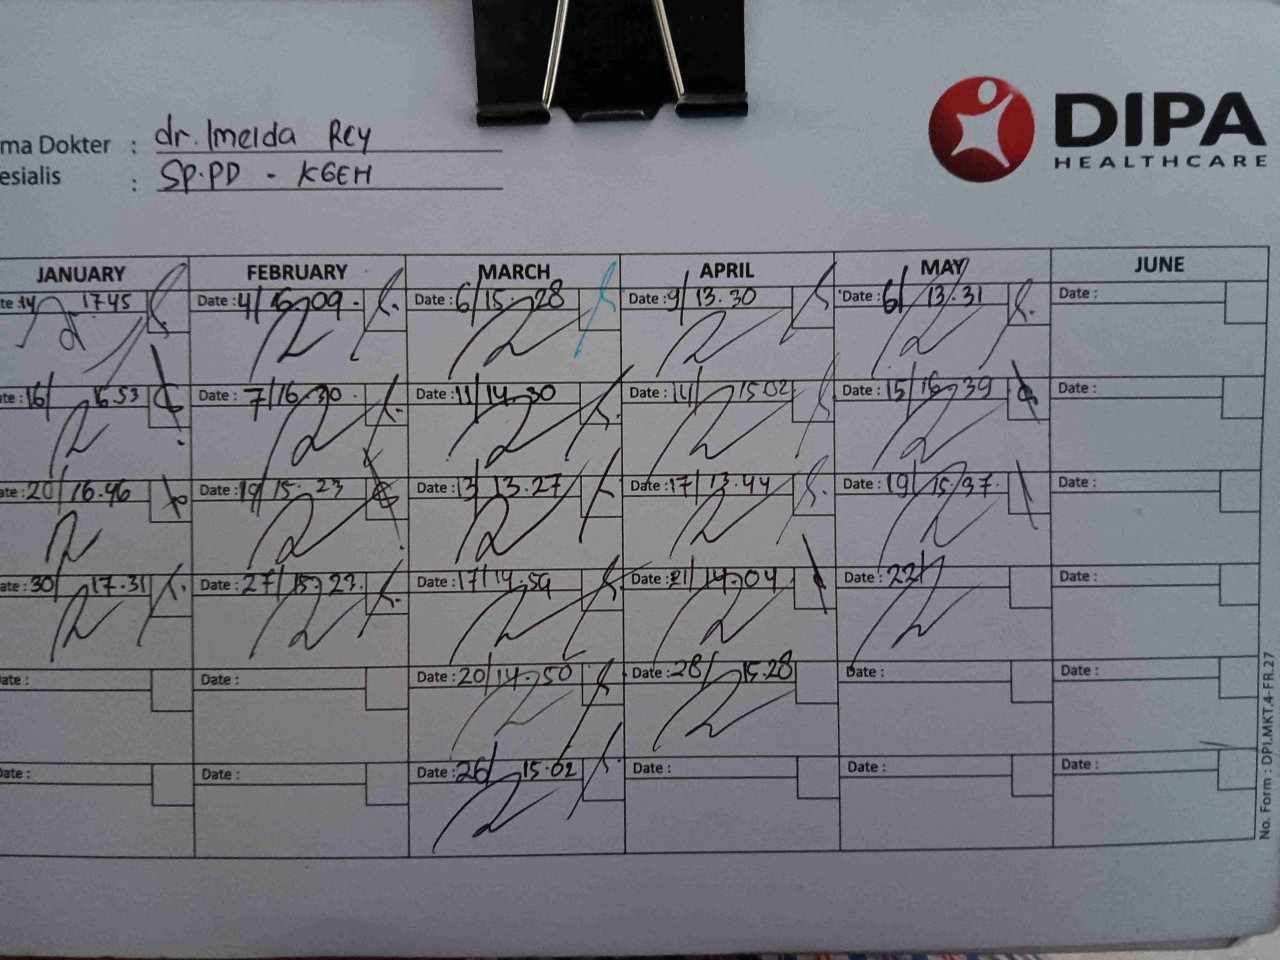 DIPA
HEALTHCARE
ma Dokter : dr. Imelda Rey
esialis : Sp.PD - KGEH
JANUARY FEBRUARY MARCH APRIL MAY JUNE
te : 14 17.45 Date : 4/16.09 Date : 6/15.28 Date : 9/13.30 Date : 6/13.31 Date :
te : 16/ 16.53 Date : 7/16.30 Date : 11/14.30 Date : 14/15.02 Date : 15/16.39 Date :
ate : 20/16.46 Date : 19/15.23 Date : 13/13.27 Date : 17/13.44 Date : 19/15.37 Date :
ate : 30/17.31 Date : 27/15.23 Date : 17/14.59 Date : 21/14.04 Date : 22/ Date :
ate : Date : Date : 20/14.50 Date : 28/15.28 Date : Date :
ate : Date : Date : 26/15.02 Date : Date : Date :
No. Form : DPI.MKT.4-FR.27